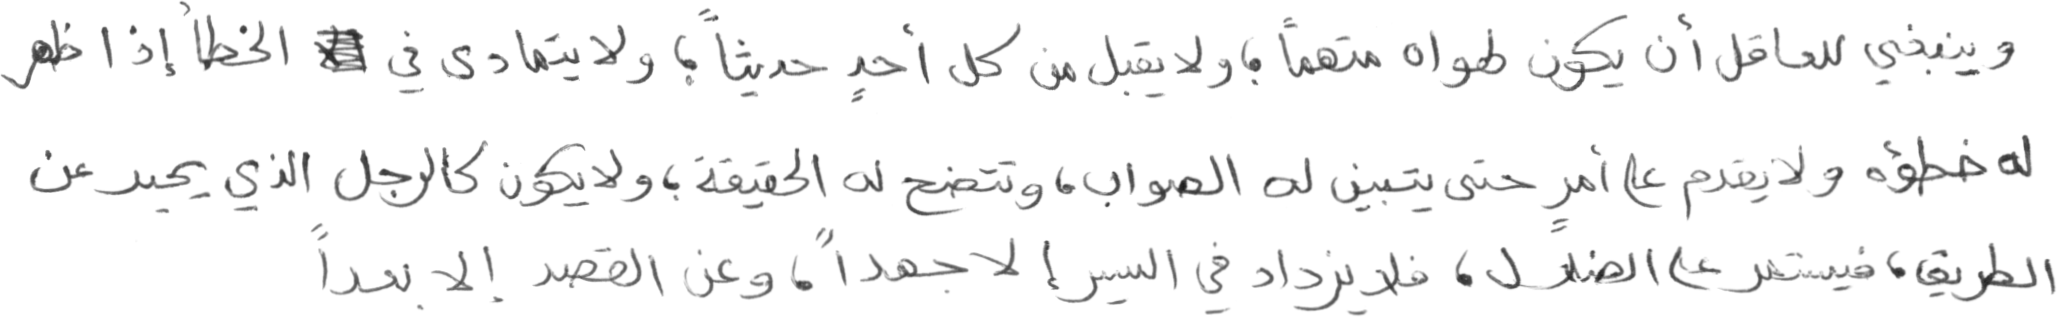 وينبغي للعاقل أن يكون لهواه متهماً، ولا يقبل من كل أحدٍ حديثاً، ولا يتمادى في الخطأ إذا ظهر
له خطؤه ولا يقدم على أمرٍ حتى يتبين له الصواب، وتتضح له الحقيقة، ولا يكون كالرجل الذي يحيد عن
الطريق، فيستمر على الضلال، فلا يزداد في السير إلا جهداً، وعن القصد إلا بعداً